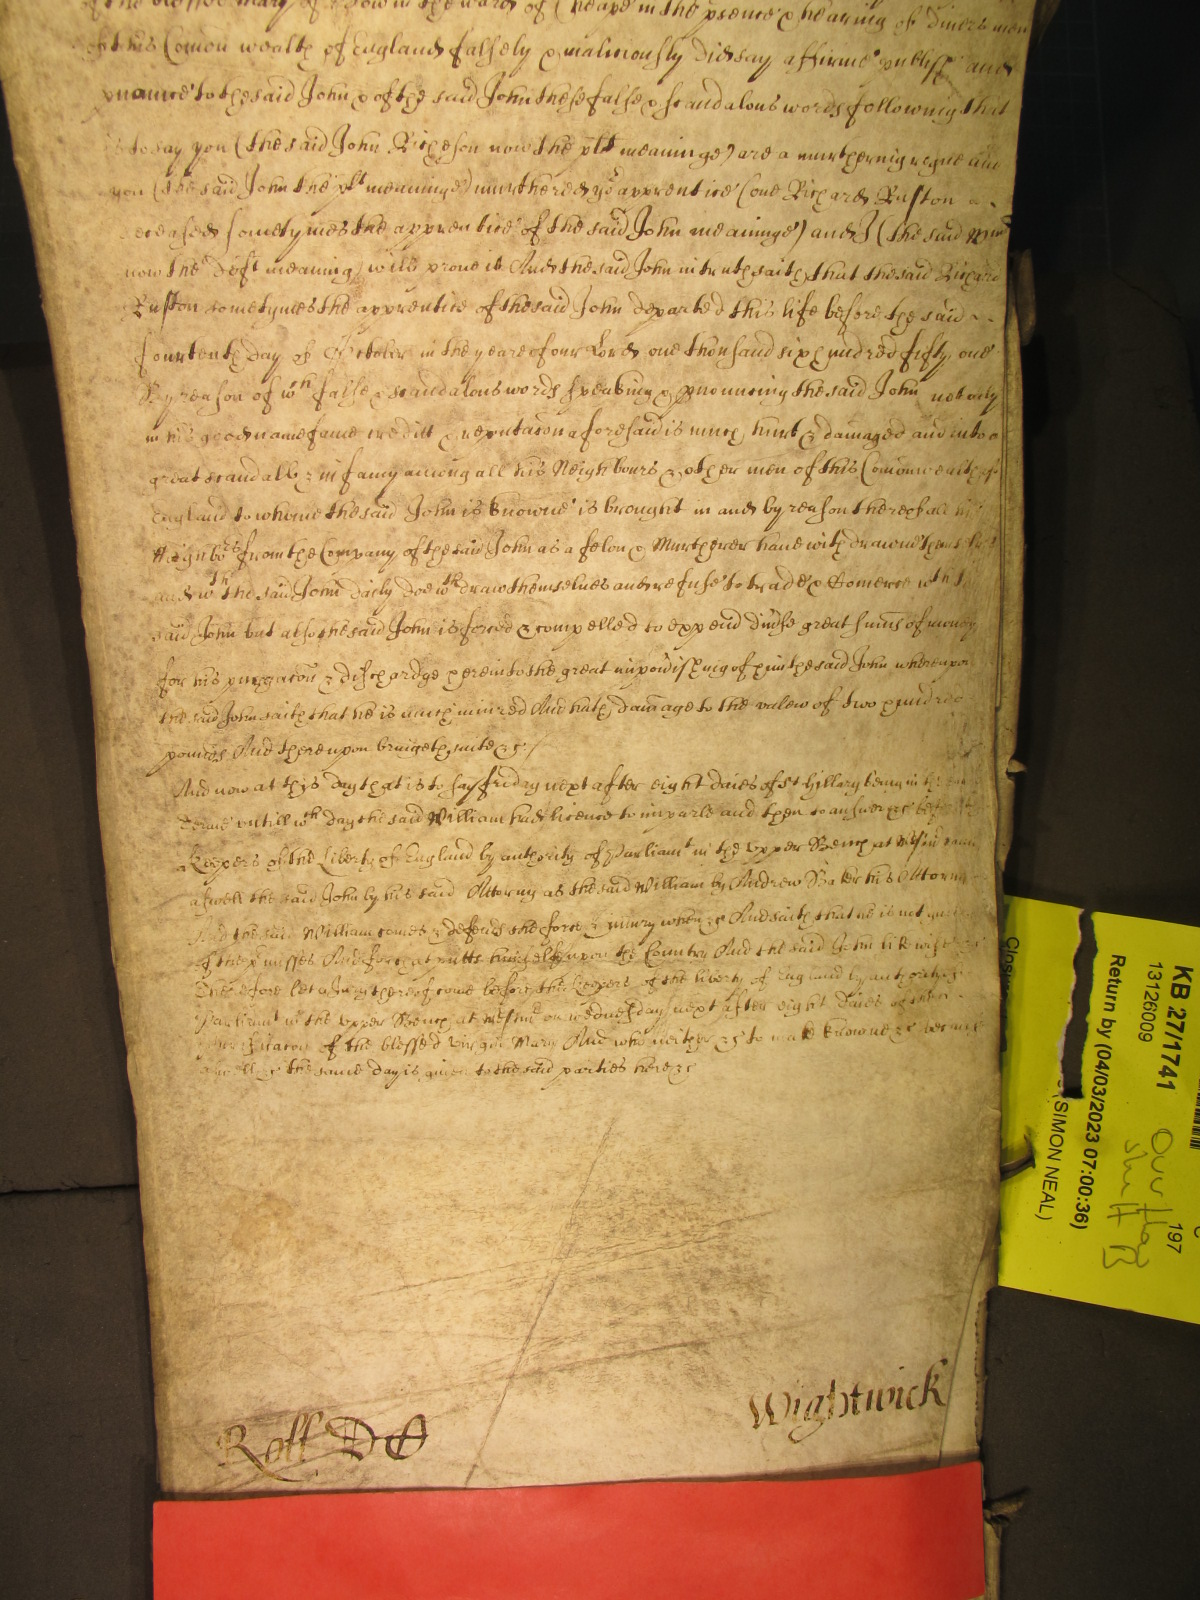 of the blessed Mary of Bow in the ward of Cheape in the psence & hearing of divers men
of this Comon wealth of England falsely & maliciously did say affirme publish and
pnounce to the said John & of the said John these false & scandalous words following that
is to say you (the said John Richeson now the plt meaninge) are a murthering rogue and
you (the said John the plt meaninge) murthered yor apprentice (one Richard Ruston
deceased sometymes the apprentice of the said John meaninge) and I (the said Willm
now the deft meaning) will prove it And the said John in truth saith that the said Richard
Ruston sometymes the apprentice of the said John departed this life before the said
fourtenth day of October in the yeare of our Lord one thousand six hundred fifty one
By reason of wch false & scandalous words speaking & pnouncing the said John not only
in his good name fame creditt & reputacon aforesaid is much hurt & damaged and into a
great scandall & infamy among all his Neighbours & other men of this Comonwealth of
England to whome the said John is knowne is brought in and by reason thereof all his
Neighbors from the Company of the said John as a felon & Murtherer have withdrawne themselves
and wth the said John daily doe wthdraw themselves and refuse to trade & Comerce wth the
said John but also the said John is forced & compelled to expend divse great sumes of money
for his purgacon & discharge herein to the great impovishing of him the said John whereupon
the said John saith that he is much iniured And hath damage to the valew of two hundred
pounds And thereupon bringeth suite &c /
And now at this day that is to say friday next after eight daies of St Hillary being in the same
Terme untill wch day the said William had licence to imparle and then to answer &c before the
Keepers of the Liberty of England by authority of Parliamt in the Upper Bench at Westm come
aswell the said John by his said Attorny as the said William by Andrew Baker his Attorny
And the said William comes & defends the force & iniury when &c And saith that he is not guilty
of the pmisses And for that putts himselfe upon the Country And the said John likewise &c
Therefore let a Jury thereof come before the Keepers of the liberty of England by authority of
Parliamt in the Upper Bench at Westmr on wednesday next after eight daies of the
purificacon of the blessed virgin Mary And who neither &c to make knowne &c because
aswell &c the same day is given to the said parties here &c
Roll
Wightwick
KB 27/1741
13126009
Return by (04/03/2023 07:00:36)
(SIMON NEAL)
197